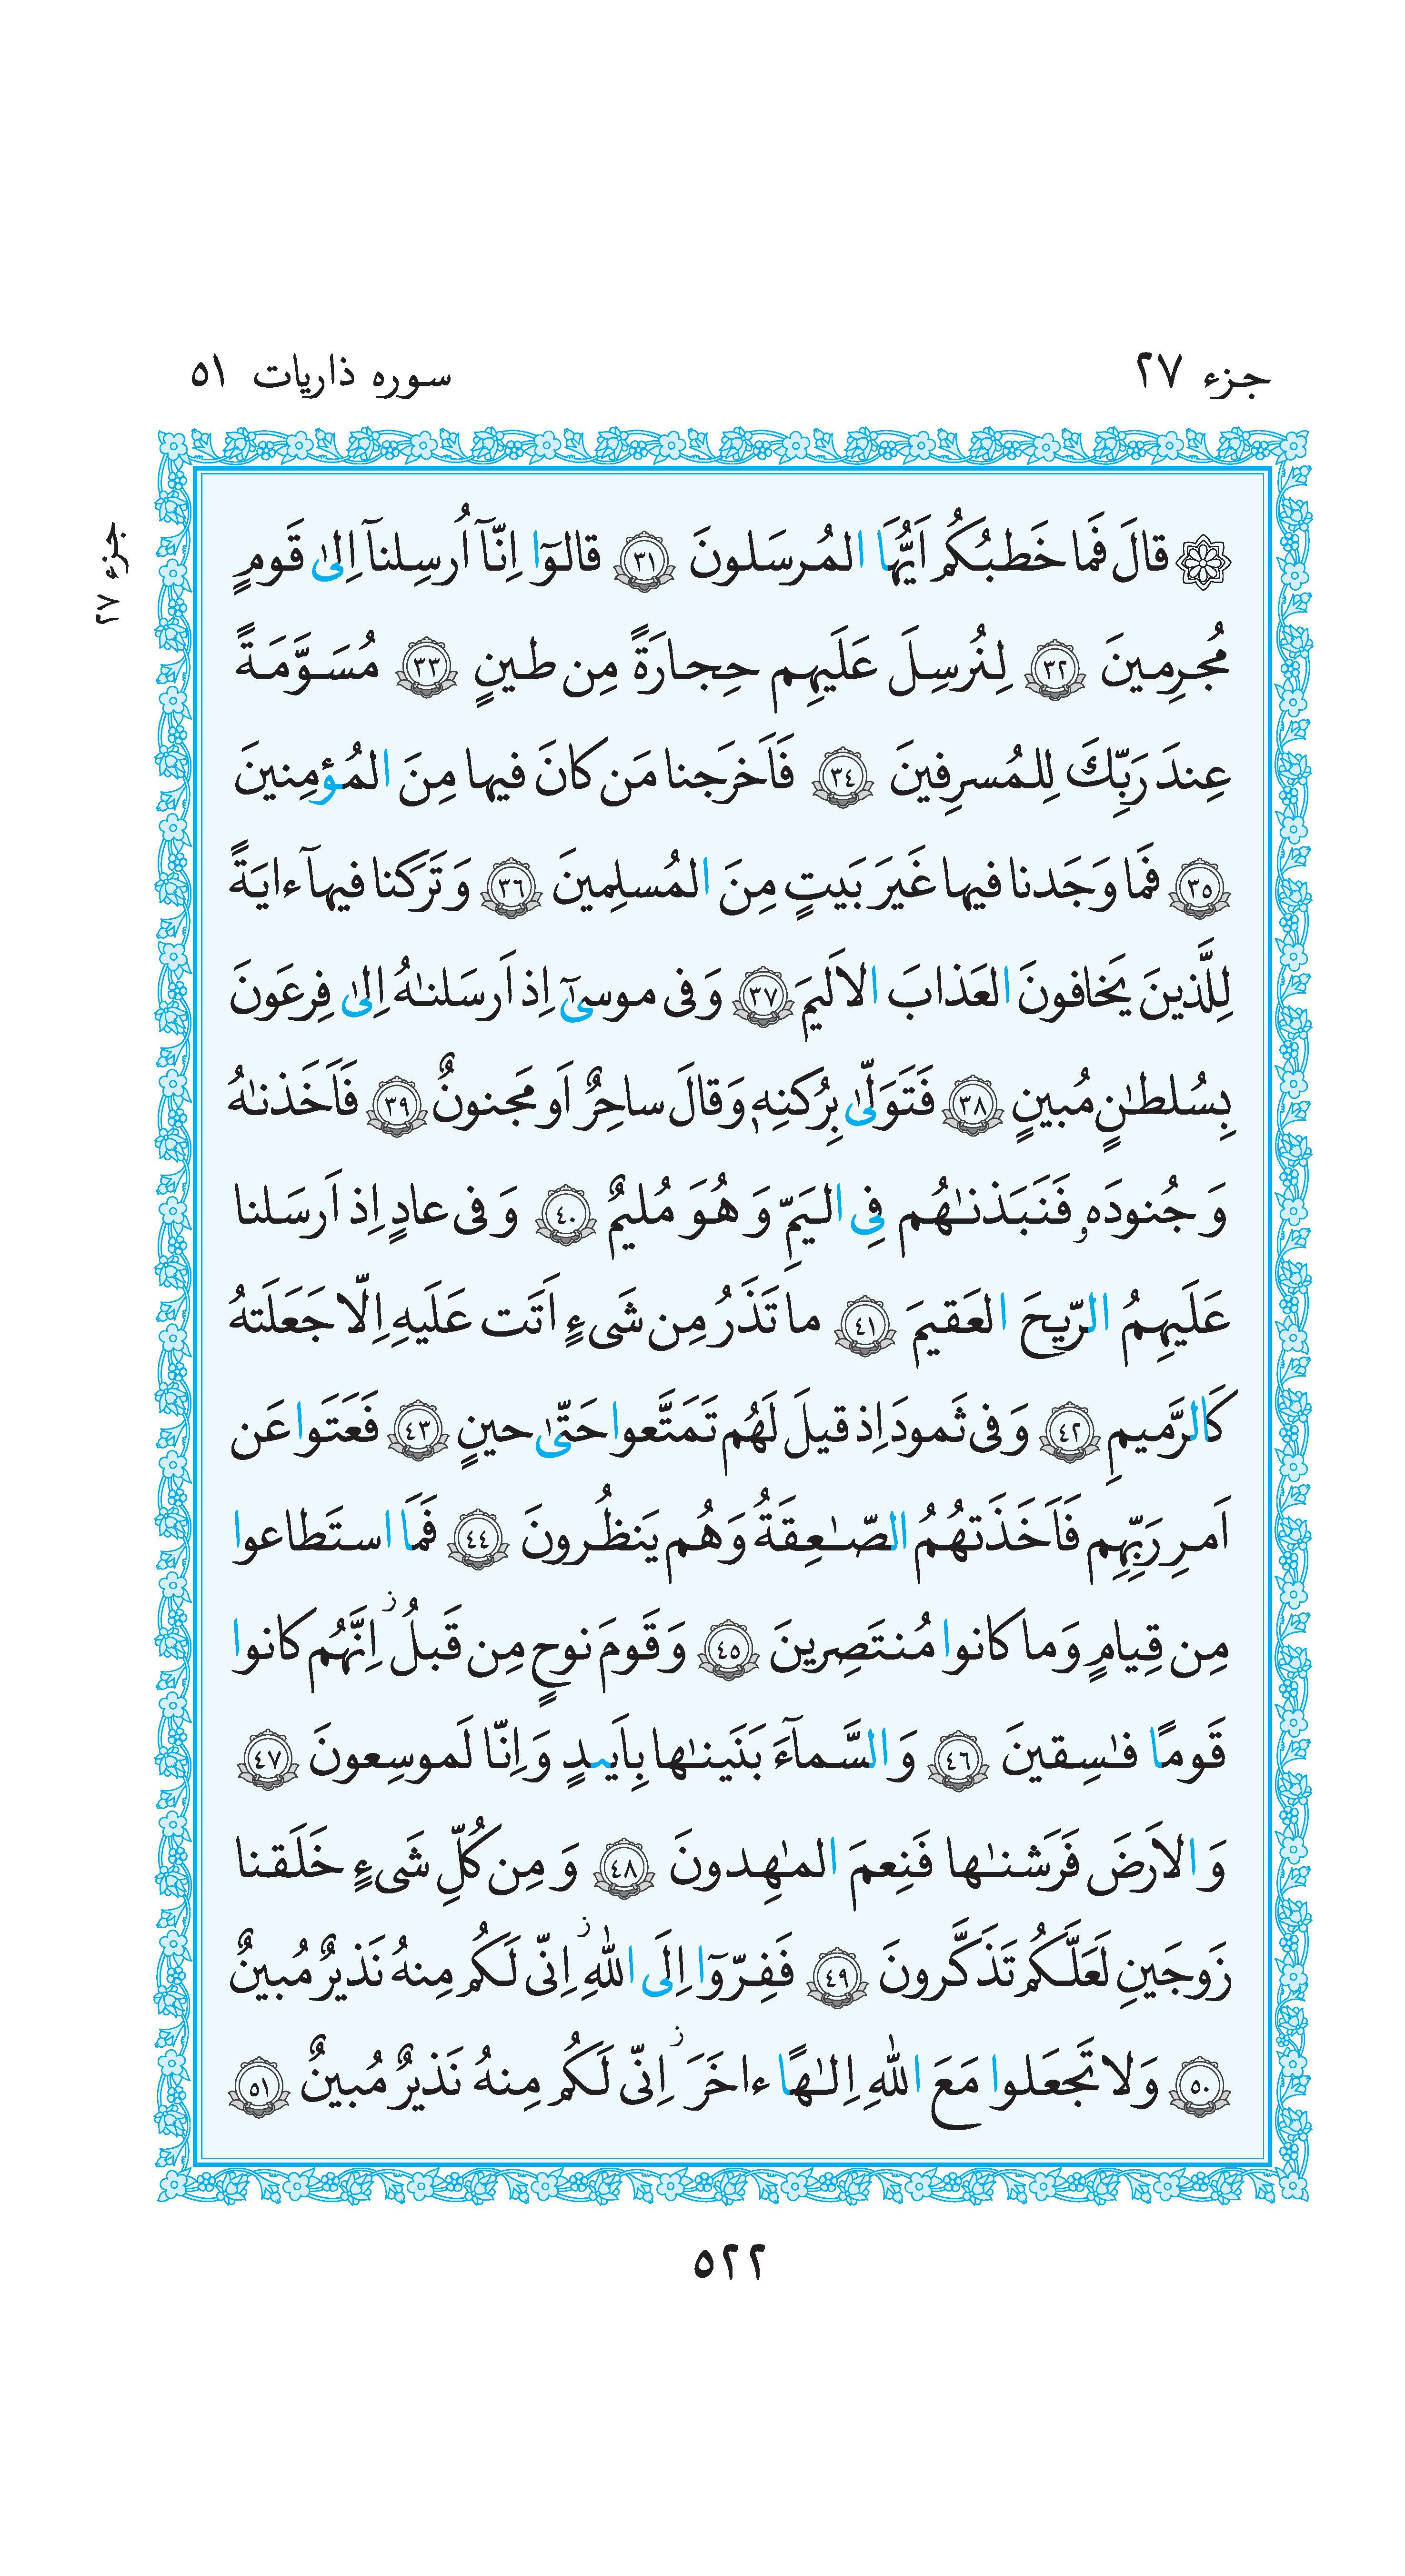 جزء ۲۷
سوره ذاریات ۵۱
جزء ۲۷
قالَ فَما خَطبُكُم اَیُّهَا المُرسَلونَ ﴿٣١﴾ قالوٓا اِنّآ اُرسِلنآ اِلىٰ قَومٍ
مُجرِمینَ ﴿٣٢﴾ لِنُرسِلَ عَلَیهِم حِجارَةً مِن طینٍ ﴿٣٣﴾ مُسَوَّمَةً
عِندَ رَبِّكَ لِلمُسرِفینَ ﴿٣٤﴾ فَاَخرَجنا مَن كانَ فیها مِنَ المُؤمِنینَ
﴿٣٥﴾ فَما وَجَدنا فیها غَیرَ بَیتٍ مِنَ المُسلِمینَ ﴿٣٦﴾ وَ تَرَكنا فیهآ ءایَةً
لِلَّذینَ یَخافونَ العَذابَ الاَلیمَ ﴿٣٧﴾ وَ فی موسىٰٓ اِذ اَرسَلنٰهُ اِلىٰ فِرعَونَ
بِسُلطٰنٍ مُبینٍ ﴿٣٨﴾ فَتَوَلّىٰ بِرُكنِهٖ وَقالَ ساحِرٌ اَو مَجنونٌ ﴿٣٩﴾ فَاَخَذنٰهُ
وَ جُنودَهٗ فَنَبَذنٰهُم فِی الیَمِّ وَ هُوَ مُلیمٌ ﴿٤٠﴾ وَ فی عادٍ اِذ اَرسَلنا
عَلَیهِمُ الرّیحَ العَقیمَ ﴿٤١﴾ ما تَذَرُ مِن شَیءٍ اَتَت عَلَیهِ اِلّا جَعَلَتهُ
كَالرَّمیمِ ﴿٤٢﴾ وَ فی ثَمودَ اِذ قیلَ لَهُم تَمَتَّعوا حَتّىٰ حینٍ ﴿٤٣﴾ فَعَتَوا عَن
اَمرِ رَبِّهِم فَاَخَذَتهُمُ الصّٰعِقَةُ وَهُم یَنظُرونَ ﴿٤٤﴾ فَمَا استَطاعوا
مِن قِیامٍ وَما كانوا مُنتَصِرینَ ﴿٤٥﴾ وَ قَومَ نوحٍ مِن قَبلُ ز اِنَّهُم كانوا
قَومًا فٰسِقینَ ﴿٤٦﴾ وَ السَّمآءَ بَنَینٰها بِاَییدٍ وَ اِنّا لَموسِعونَ ﴿٤٧﴾
وَ الاَرضَ فَرَشنٰها فَنِعمَ المٰهِدونَ ﴿٤٨﴾ وَ مِن كُلِّ شَیءٍ خَلَقنا
زَوجَینِ لَعَلَّكُم تَذَكَّرونَ ﴿٤٩﴾ فَفِرّوٓا اِلَى اللّٰهِ ز اِنّی لَكُم مِنهُ نَذیرٌ مُبینٌ
﴿٥٠﴾ وَلا تَجعَلوا مَعَ اللّٰهِ اِلٰهًا ءاخَرَ ز اِنّی لَكُم مِنهُ نَذیرٌ مُبینٌ ﴿٥١﴾
۵۲۲